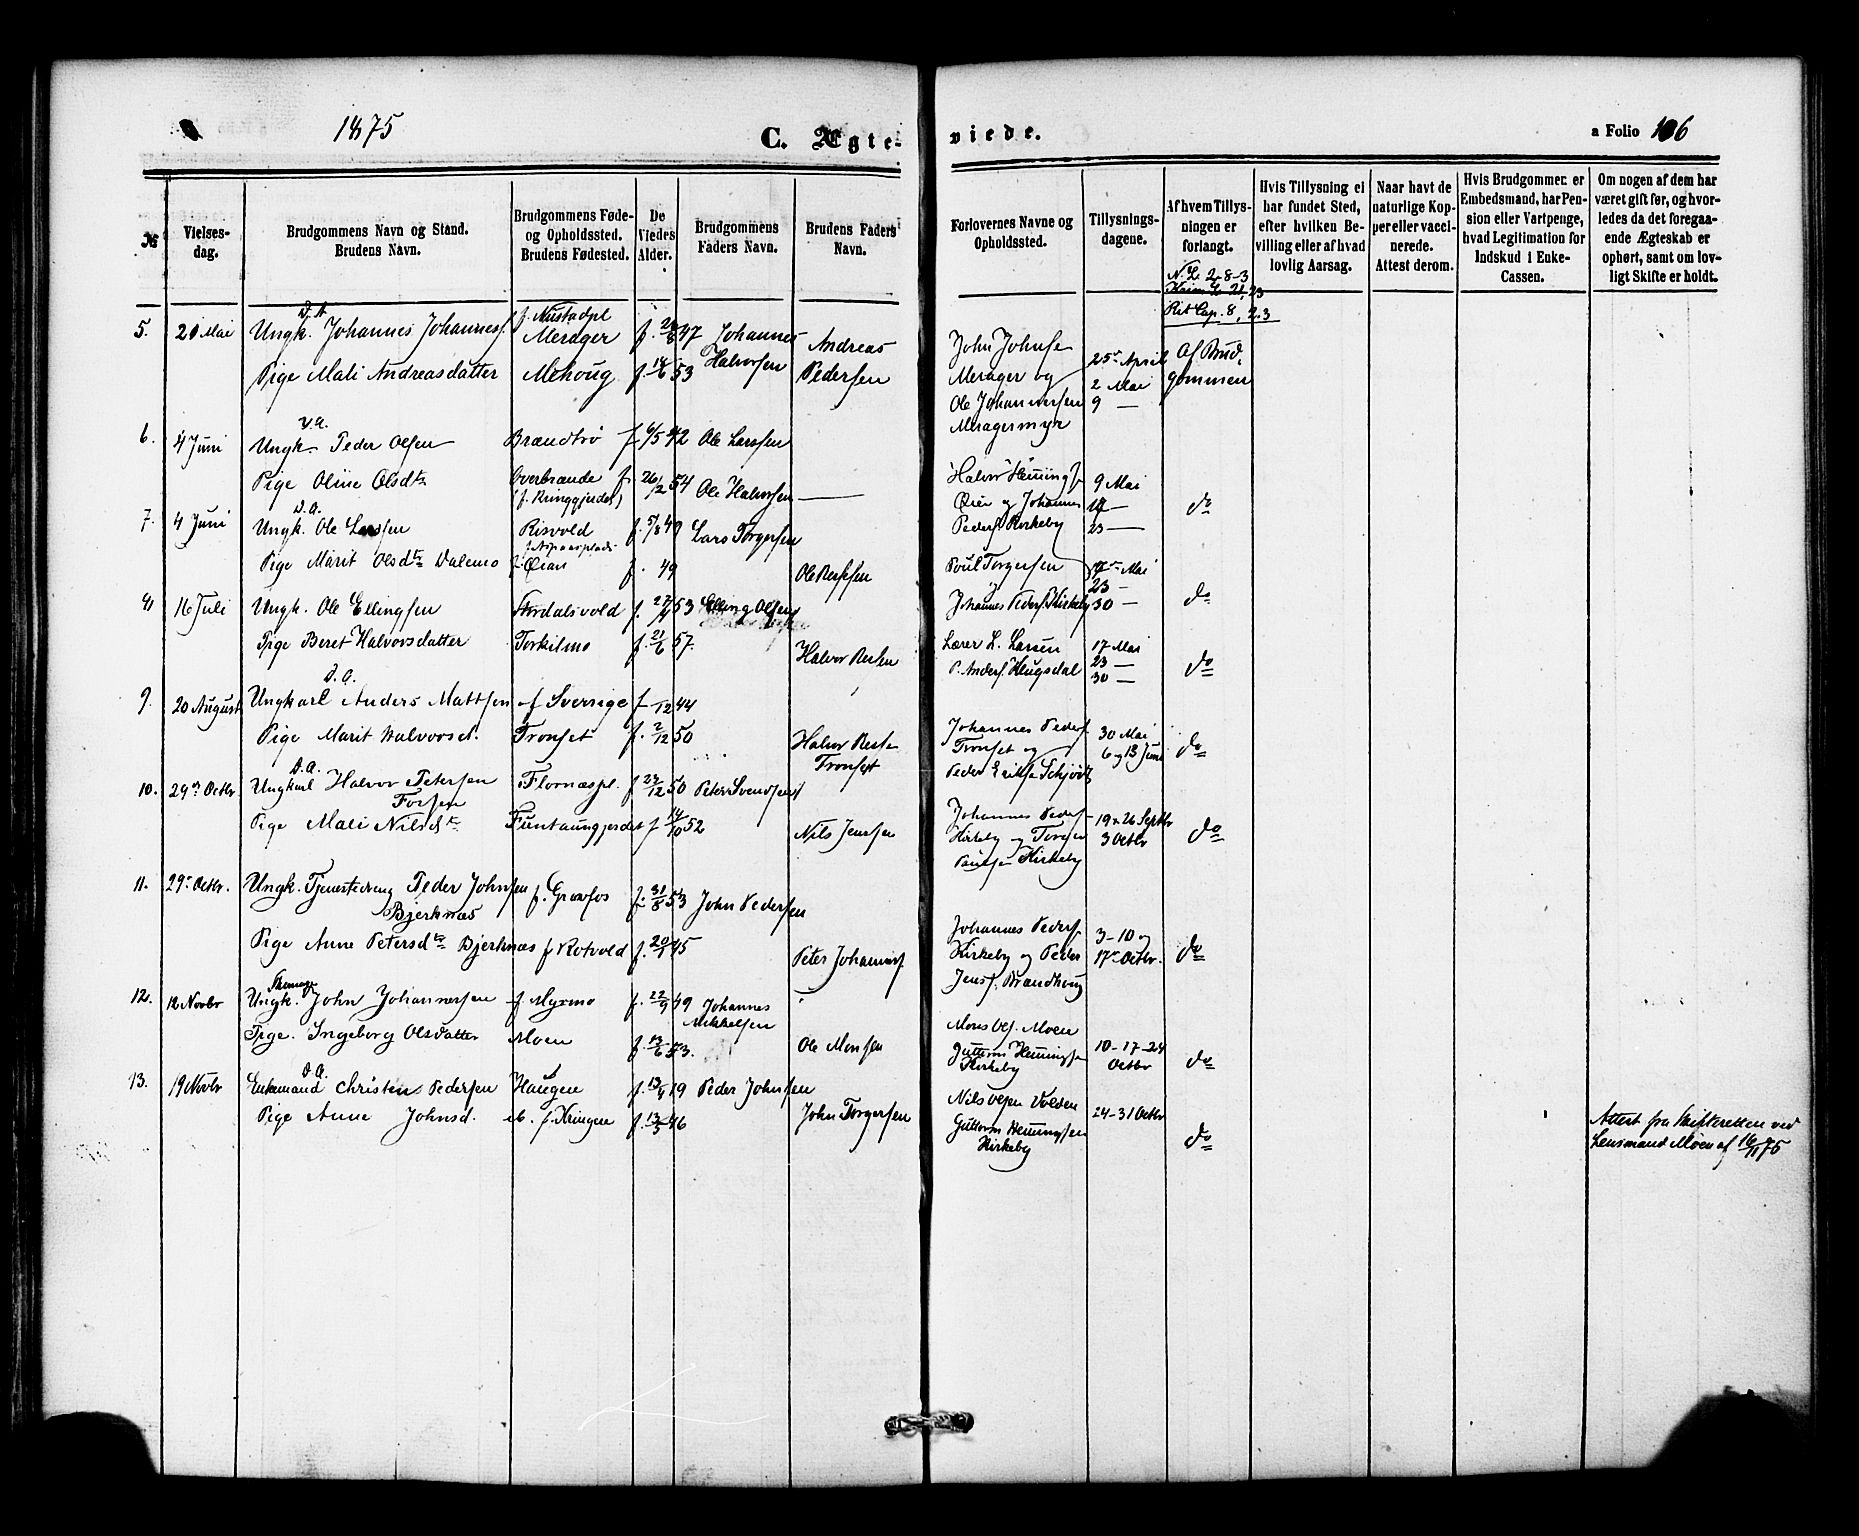 1875
C. Ægte-
viede.
a Folio 106
№
Vielses-
dag.
Brudgommens Navn og Stand.
Brudens Navn.
Brudgommens Føde-
og Opholdssted.
Brudens Fødested.
De
Viedes
Alder.
Brudgommens
Faders Navn.
Brudens Faders
Navn.
Forlovernes Navne og
Opholdssted.
Tillysnings-
dagene.
Af hvem Tillys-
ningen er
forlangt.
Hvis Tillysning ei
har fundet Sted,
efter hvilken Be-
villing eller af hvad
lovlig Aarsag.
Naar havt de
naturlige Kop-
per eller vacci-
nerede.
Attest derom.
Hvis Brudgommen er
Embedsmand, har Pen-
sion eller Vartpenge,
hvad Legitimation for
Indskud i Enke-
Cassen.
Om nogen af dem har
været gift før, og hvor-
ledes da det foregaa-
ende Ægteskab er
ophørt, samt om lov-
ligt Skifte er holdt.
N. L. 2-8-3
Rit Cap. 8, 2.3
5. 20 Mai Ungk. Johannes Johannesf. Merager Johannes Halvorsen
Pige Mali Andreasdatter Mehoug 53 Andreas Pedersen
John Johnse Merager og Ole Johannessen Meragermyr
25 April 2 Mai 9 —
Af Brud-
gommen
6. 4 Juni Ungk. Peder Olsen Brandtrø f 6/5 42 Ole Larssen
Pige Oline Olsdtr Overbrande f 26/12 54 Ole Halvorsen
Halvor Henningf Øien og Johannes Pedersf Kirkeby
9 Mai 23 —
do
7. 4 Juni Ungk. Ole Larssen Risvold f. 5/8 49 Lars Torgersen
Pige Marit Olsdtr Dalemo f. 49
Poul Torgersen Johannes Pedersf. Kirkeby
Mai 23 — 30 —
do
16 Juli Ungk. Ole Ellingsen f. 53 Elling Olsen
Pige Beret Halvorsdatter Torkilmo f. 21/6 57.
Lærer L. Larsen P. Andersf. Heugsdal
17 Mai 23 — 30 —
do
9. 20 August Ungkarl Anders Mattsen f Sverrige f /12 44
Pige Marit Halvorsd. Tronset f. 2/12 50 Halvor Tronset
Johannes Pedersf. Tronset og Peder
30 Mai 6 og 13 Juni
do
10. 29 Octbr Ungkarl Halvor Petersen Flornæspl. f 12 50 Peter Svendsen
Pige Mali Nilsdtr f 14/10 52 Nils Jenssen
Johannes Pedersf Kirkeby og Kirkeby
19 & 26 Septbr 3 Octbr
do
11. 29 Octbr. Ungk. Tjenestedreng Peder Johnsen Bjerknæs f. Grøvfos f. 31/8 53 John Pedersen
Pige Anne Petersdtr Bjerknæs f Rotvold f. 20/1 45 Peter Johannesf
Johannes Pedersf. Kirkeby og Peder Jensf. Brandhoug
3-10 og 17 Octbr.
do
12. 12 Novbr Ungk. John Johannessen f Myrmo f. 22/9 49 Johannes Mikkelsen
Pige. Ingeborg Olsdatter Moen f. 13/6 53. Ole Monsen
Mons Moen Guttorm Henningsen Kirkeby
10-17-24 Octbr
do
13. 19 Novbr Enkemand Christen Pedersen Haugen f. 19 Peder Johnsen
Pige Anne Johnsd. f. Kringen f. 13/5 46 John Torgersen
Nils Volden Guttorm Henningsen Kirkeby
24-31 Octbr
do
Attest fra Skifteretten ved
Lensmand Moen af 16/11 75